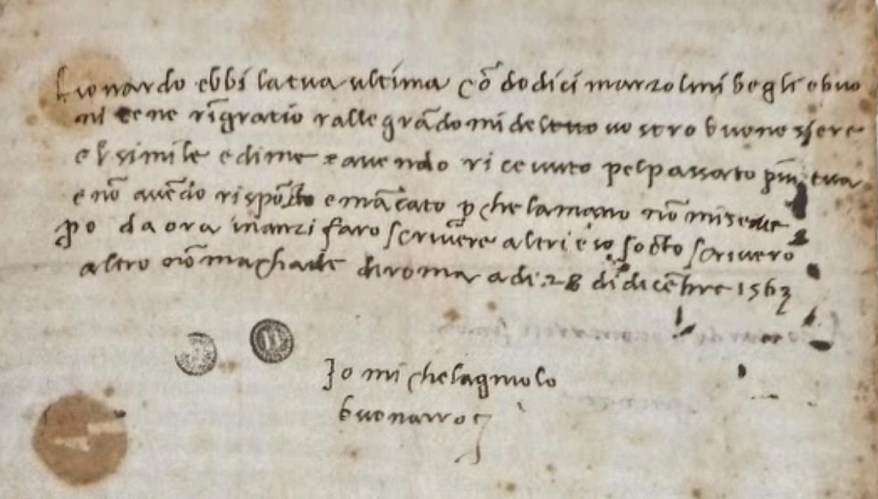 Lionardo ebbi la tua ultima cō dodici marzolini begli e buo
ni te ne rīgratio rallegrādomi del vostro buono essere
e l simile e di me e avendo ricevuto pel passato piu tua
e nō avēdo risposto e mācato p che la mano nō mi serve
po da ora inanzi faro scrivere altri e io soctoscriverò
altro nō machade di roma a di 28 di dicēbre 1563
Io michelagniolo
buonarroti